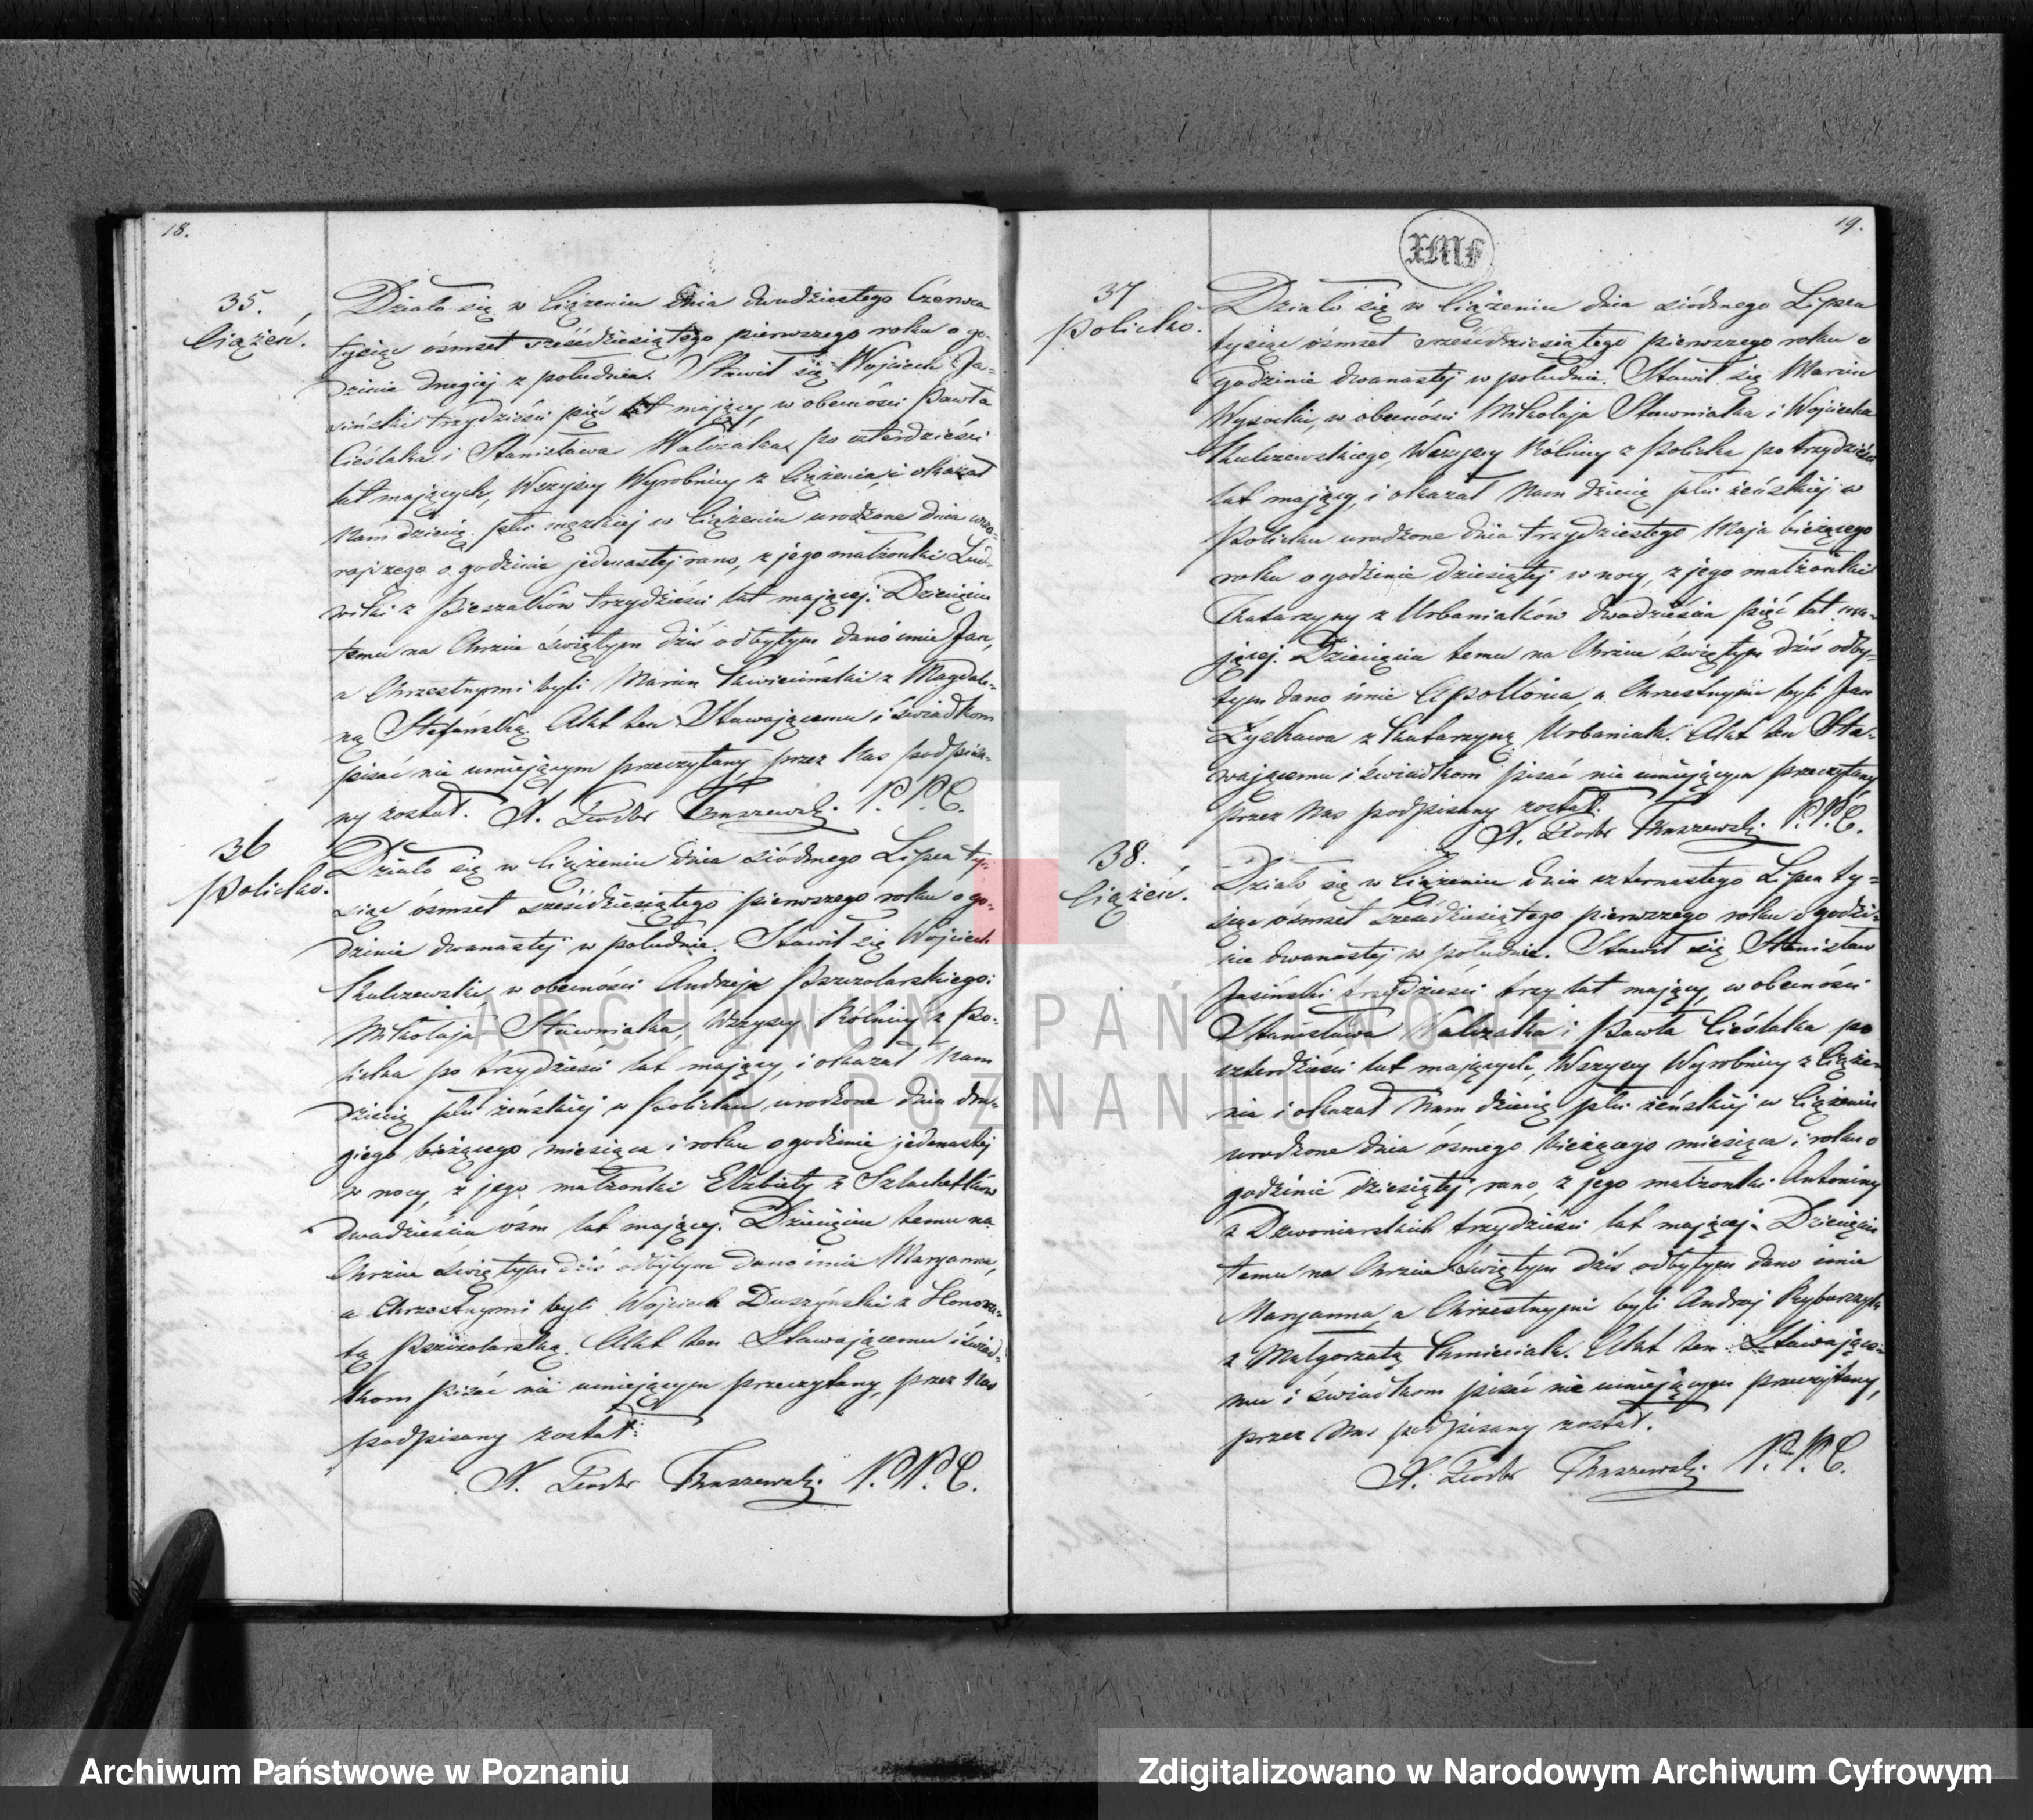 18.
35.
Ciążeń.
Działo się w Ciążeniu dnia dwudziestego Czerwca
tysiąc ośmset sześćdziesiątego pierwszego roku o go-
dzinie drugiej z południa. Stawił się Wojciech Ja-
siński trzydzieści pięć lat mający, w obecności Pawła
Cieślaka i Stanisława Walczaka po czterdzieści
lat mających, Wszyscy Wyrobnicy z Ciążenia i okazał
Nam dziecię płci męzkiej w Ciążeniu urodzone dnia wczo-
rajszego o godzinie jedenastej rano, z jego małżonki Lud-
wiki z Pieszaków trzydzieści lat mającej. Dziecięciu
temu na Chrzcie świętym dziś odbytym dano imie Jan,
a Chrzestnymi byli Marcin Kwieciński z Magdale-
ną Stefańską. Akt ten Stawającemu i świadkom
pisać nie umiejącym przeczytany przez Nas podpisa-
ny został. X. Teodor Kruszewski P.P.C.
36
Policko.
Działo się w Ciążeniu dnia siódmego Lipca ty-
siąc ośmset sześćdziesiątego pierwszego roku o go-
dzinie dwanastej w południe. Stawił się Wojciech
Kulczewski, w obecności Andrzeja Pszczolarskiego i
Mikołaja Stawniaka, Wszyscy Rólnicy z Po-
licka po trzydzieści lat mający, i okazał Nam
dziecię płci żeńskiej w Policku urodzone dnia dru-
giego bieżącego miesiąca i roku o godzinie jedenastej
w nocy, z jego małżonki Elżbiety z Szlachetków
dwadzieścia ośm lat mającej. Dziecięciu temu na
Chrzcie świętym dziś odbytym dano imie Maryanna,
a Chrzestnymi byli Wojciech Duszyński z Honora-
tą Pszczolarską. Akt ten Stawającemu i świad-
kom pisać nie umiejącym przeczytany, przez Nas
podpisany został.
X. Teodor Kruszewski P.P.C.
19.
37
Policko.
Działo się w Ciążeniu dnia siódmego Lipca
tysiąc ośmset sześćdziesiątego pierwszego roku o
godzinie dwanastej w południe. Stawił się Marcin
Wysocki, w obecności Mikołaja Stawniaka i Wojciecha
Kulczewskiego, Wszyscy Rólnicy z Policka po trzydzieści
lat mający, i okazał Nam dziecię płci żeńskiej w
Policku urodzone dnia trzydziestego Maja bieżącego
roku o godzinie dziesiątej w nocy, z jego małżonki
Katarzyny z Urbaniaków dwadzieścia pięć lat ma-
jącej. Dziecięciu temu na Chrzcie świętym dziś odby-
tym dano imie Apollonia, a Chrzestnymi byli Jan
Łyskawa z Katarzyną Urbaniak. Akt ten Sta-
wającemu i świadkom pisać nie umiejącym przeczytany
przez Nas podpisany został.
X. Teodor Kruszewski P.P.C.
38.
Ciążeń.
Działo się w Ciążeniu dnia czternastego Lipca ty-
siąc ośmset sześćdziesiątego pierwszego roku o godzi-
nie dwanastej w południe. Stawił się Stanisław
Jasiński trzydzieści trzy lat mający, w obecności
Stanisława Walczaka i Pawła Cieślaka po
czterdzieści lat mających, Wszyscy Wyrobnicy z Ciąże-
nia i okazał Nam dziecię płci żeńskiej w Ciążeniu
urodzone dnia ósmego bieżącego miesiąca i roku o
godzinie dziesiątej rano, z jego małżonki Antoniny
z Dzwoniarskich trzydzieści lat mającej. Dziecięciu
temu na Chrzcie świętym dziś odbytym dano imie
Maryanna, a Chrzestnymi byli Andrzej Rybarczyk
z Małgorzatą Kmieciak. Akt ten Stawające-
mu i świadkom pisać nie umiejącym przeczytany,
przez Nas podpisany został.
X. Teodor Kruszewski P.P.C.
ARCHIWUM PAŃSTWOWE
W POZNANIU
Archiwum Państwowe w Poznaniu
Zdigitalizowano w Narodowym Archiwum Cyfrowym